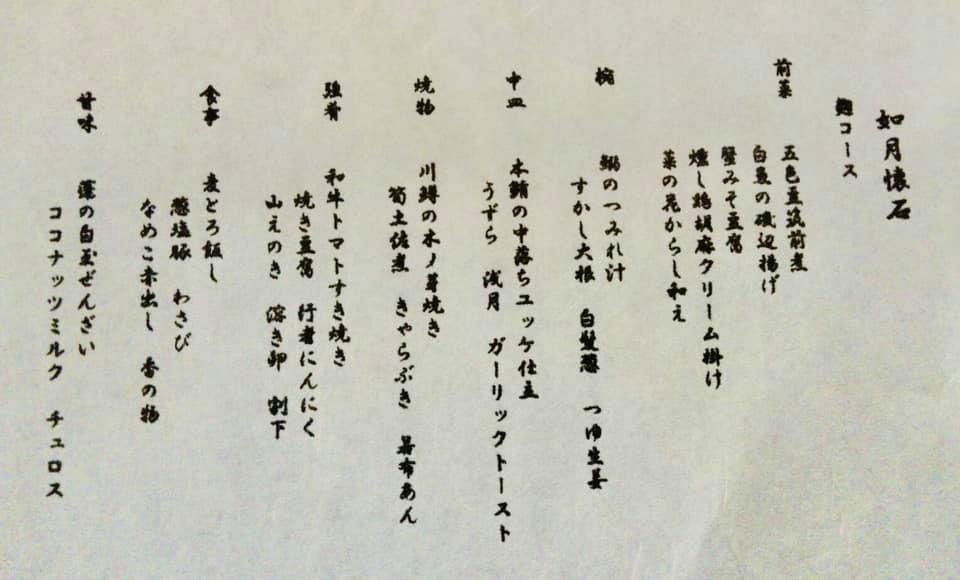 如月懐石
麹コース
前菜
五色豆筑前煮
白魚の磯辺揚げ
蟹みそ豆腐
燻し鴨胡麻クリーム掛け
菜の花からし和え
椀
鰯のつみれ汁
すかし大根 白髪葱 つゆ生姜
中皿
本鮪の中落ちユッケ仕立
うずら 浅月 ガーリックトースト
焼物
川鱒の木ノ芽焼き
筍土佐煮 きゃらぶき 昆布あん
強肴
和牛トマトすき焼き
焼き豆腐 行者にんにく
山えのき 溶き卵 割下
食事
麦とろ飯し
葱塩豚 わさび
なめこ赤出し 香の物
甘味
蓬の白玉ぜんざい
ココナッツミルク チュロス